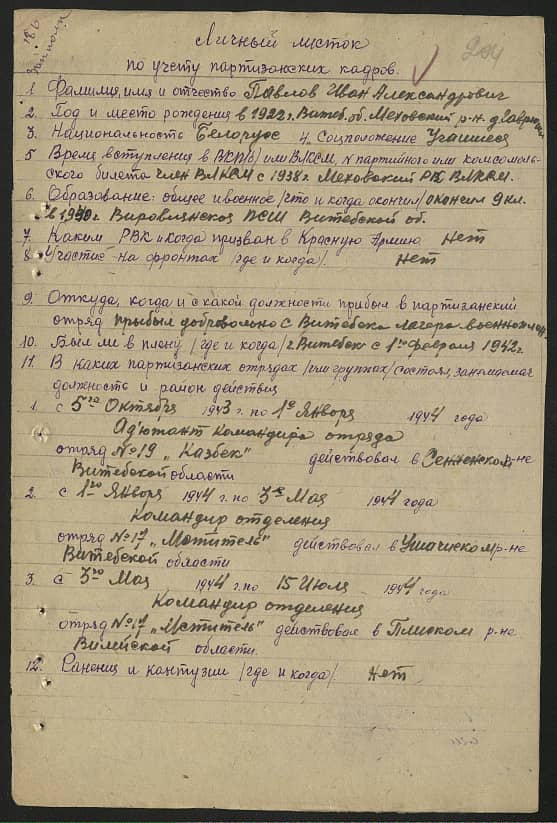 204
Личный листок
по учету партизанских кадров.
1. Фамилия, имя и отчество Павлов Иван Александрович
2. Год и место рождения в 1922 г. Витеб. об. Меховский р-н. д.
3. Национальность Белорус 4. Соцположение Учащиеся
5 Время вступления в ВКП/б/ или ВЛКСМ, N партийного или комсомоль-
ского билета член ВЛКСМ с 1938 г. Меховский РК ВЛКСМ.
6. Образование: общее и военное /что и когда окончил/ окончил 9 кл.
в 1940 г. ПСШ Витебской об.
7. Каким РВК и когда призван в Красную Армию Нет
8. Участие на фронтах /где и когда/. Нет
9. Откуда, когда и с какой должности прибыл в партизанский
отряд прибыл добровольно с Витебска лагера
10. Был ли в плену /где и когда/ г Витебск с 1го Февраля 1942 г
11. В каких партизанских отрядах /или группах/ состоял, занимаемая
должность и район действия
1. с 5го Октября 1943 г. по 1е Января 1944 года
Адъютант командира отряда
отряд № 19 „Казбек" действовал в Сенненском р-не
Витебской области
2. с 1го Января 1944 г. по 3е Мая 1944 года
Командир отделения
отряд № 17 „Мститель" действовал в Ушачиском р-не
Витебской области
3. с 3го Мая 1944 г. по 15 Июля 1944 года
Командир отделения
отряд № 17 „Мститель" действовал в Плиском р-не
Вилейской области.
12. Ранения и контузии /где и когда/ Нет